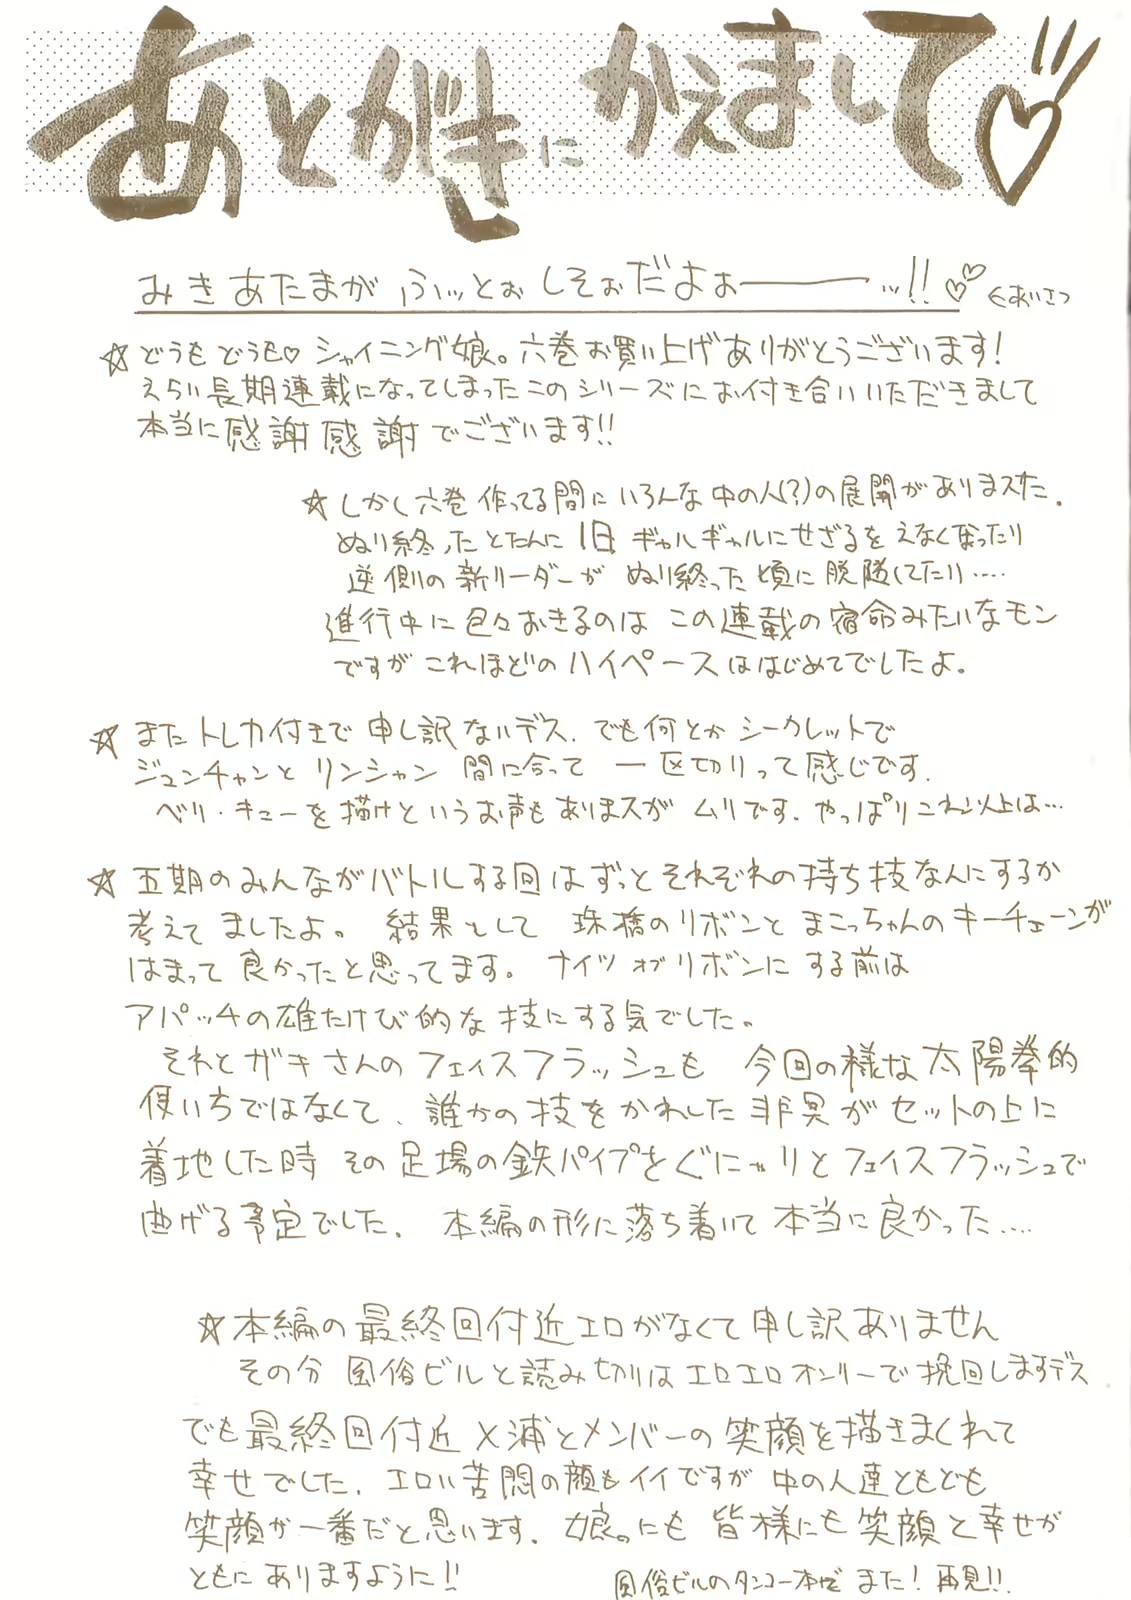 あとがきにかえまして♡
みきあたまが ふっとぉ しそぉだよぉー…!!♡♡ ←あいさつ
☆どうもどうも♡ シャイニング娘。六巻お買い上げありがとうございます!
えらい長期連載になってしまったこのシリーズにお付き合いいただきまして
本当に感謝感謝でございます!!
☆しかし六巻作ってる間にいろんな中の人(?)の展開がありまスた.
ぬり終ったとたんに1日ギャルギャルにせざるをえなくなったり
逆側の新リーダーが ぬり終った頃に脱隊してたり……
進行中に色々おきるのは この連載の宿命みたいなモン
ですが これほどのハイペースははじめてでしたよ。
☆またトレカ付きで申し訳ないデス. でも何とかシークレットで
ジュンチャンとリンシャン 間に合って 一区切りって感じです.
ベリ・キューを描けというお声もありまスが ムリです. やっぱりこれ以上は…
☆五期のみんながバトルする回はずっとそれぞれの持ち技なんにするか
考えてましたよ。 結果として 珠橋のリボンとまこっちゃんのキーチェーンが
はまって良かったと思ってます。 ナイツオブリボンにする前は
アパッチの雄たけび的な技にする気でした。
それとガキさんのフェイスフラッシュも 今回の様な太陽拳的
使いちではなくて、誰かの技をかわした非冥がセットの上に
着地した時 その足場の鉄パイプをぐにゃりとフェイスフラッシュで
曲げる予定でした. 本編の形に落ち着いて本当に良かった….
☆本編の最終回付近エロがなくて申し訳ありません
その分 風俗ビルと読み切りはエロエロオンリーで挽回しますデス
でも最終回付近 メ浦とメンバーの笑顔を描きまくれて
幸せでした. エロい苦悶の顔もイイですが 中の人達ともども
笑顔が一番だと思います. 娘。にも 皆様にも笑顔と幸せが
ともに ありますように!!
風俗ビルのタンコー本で また! 再見!!.